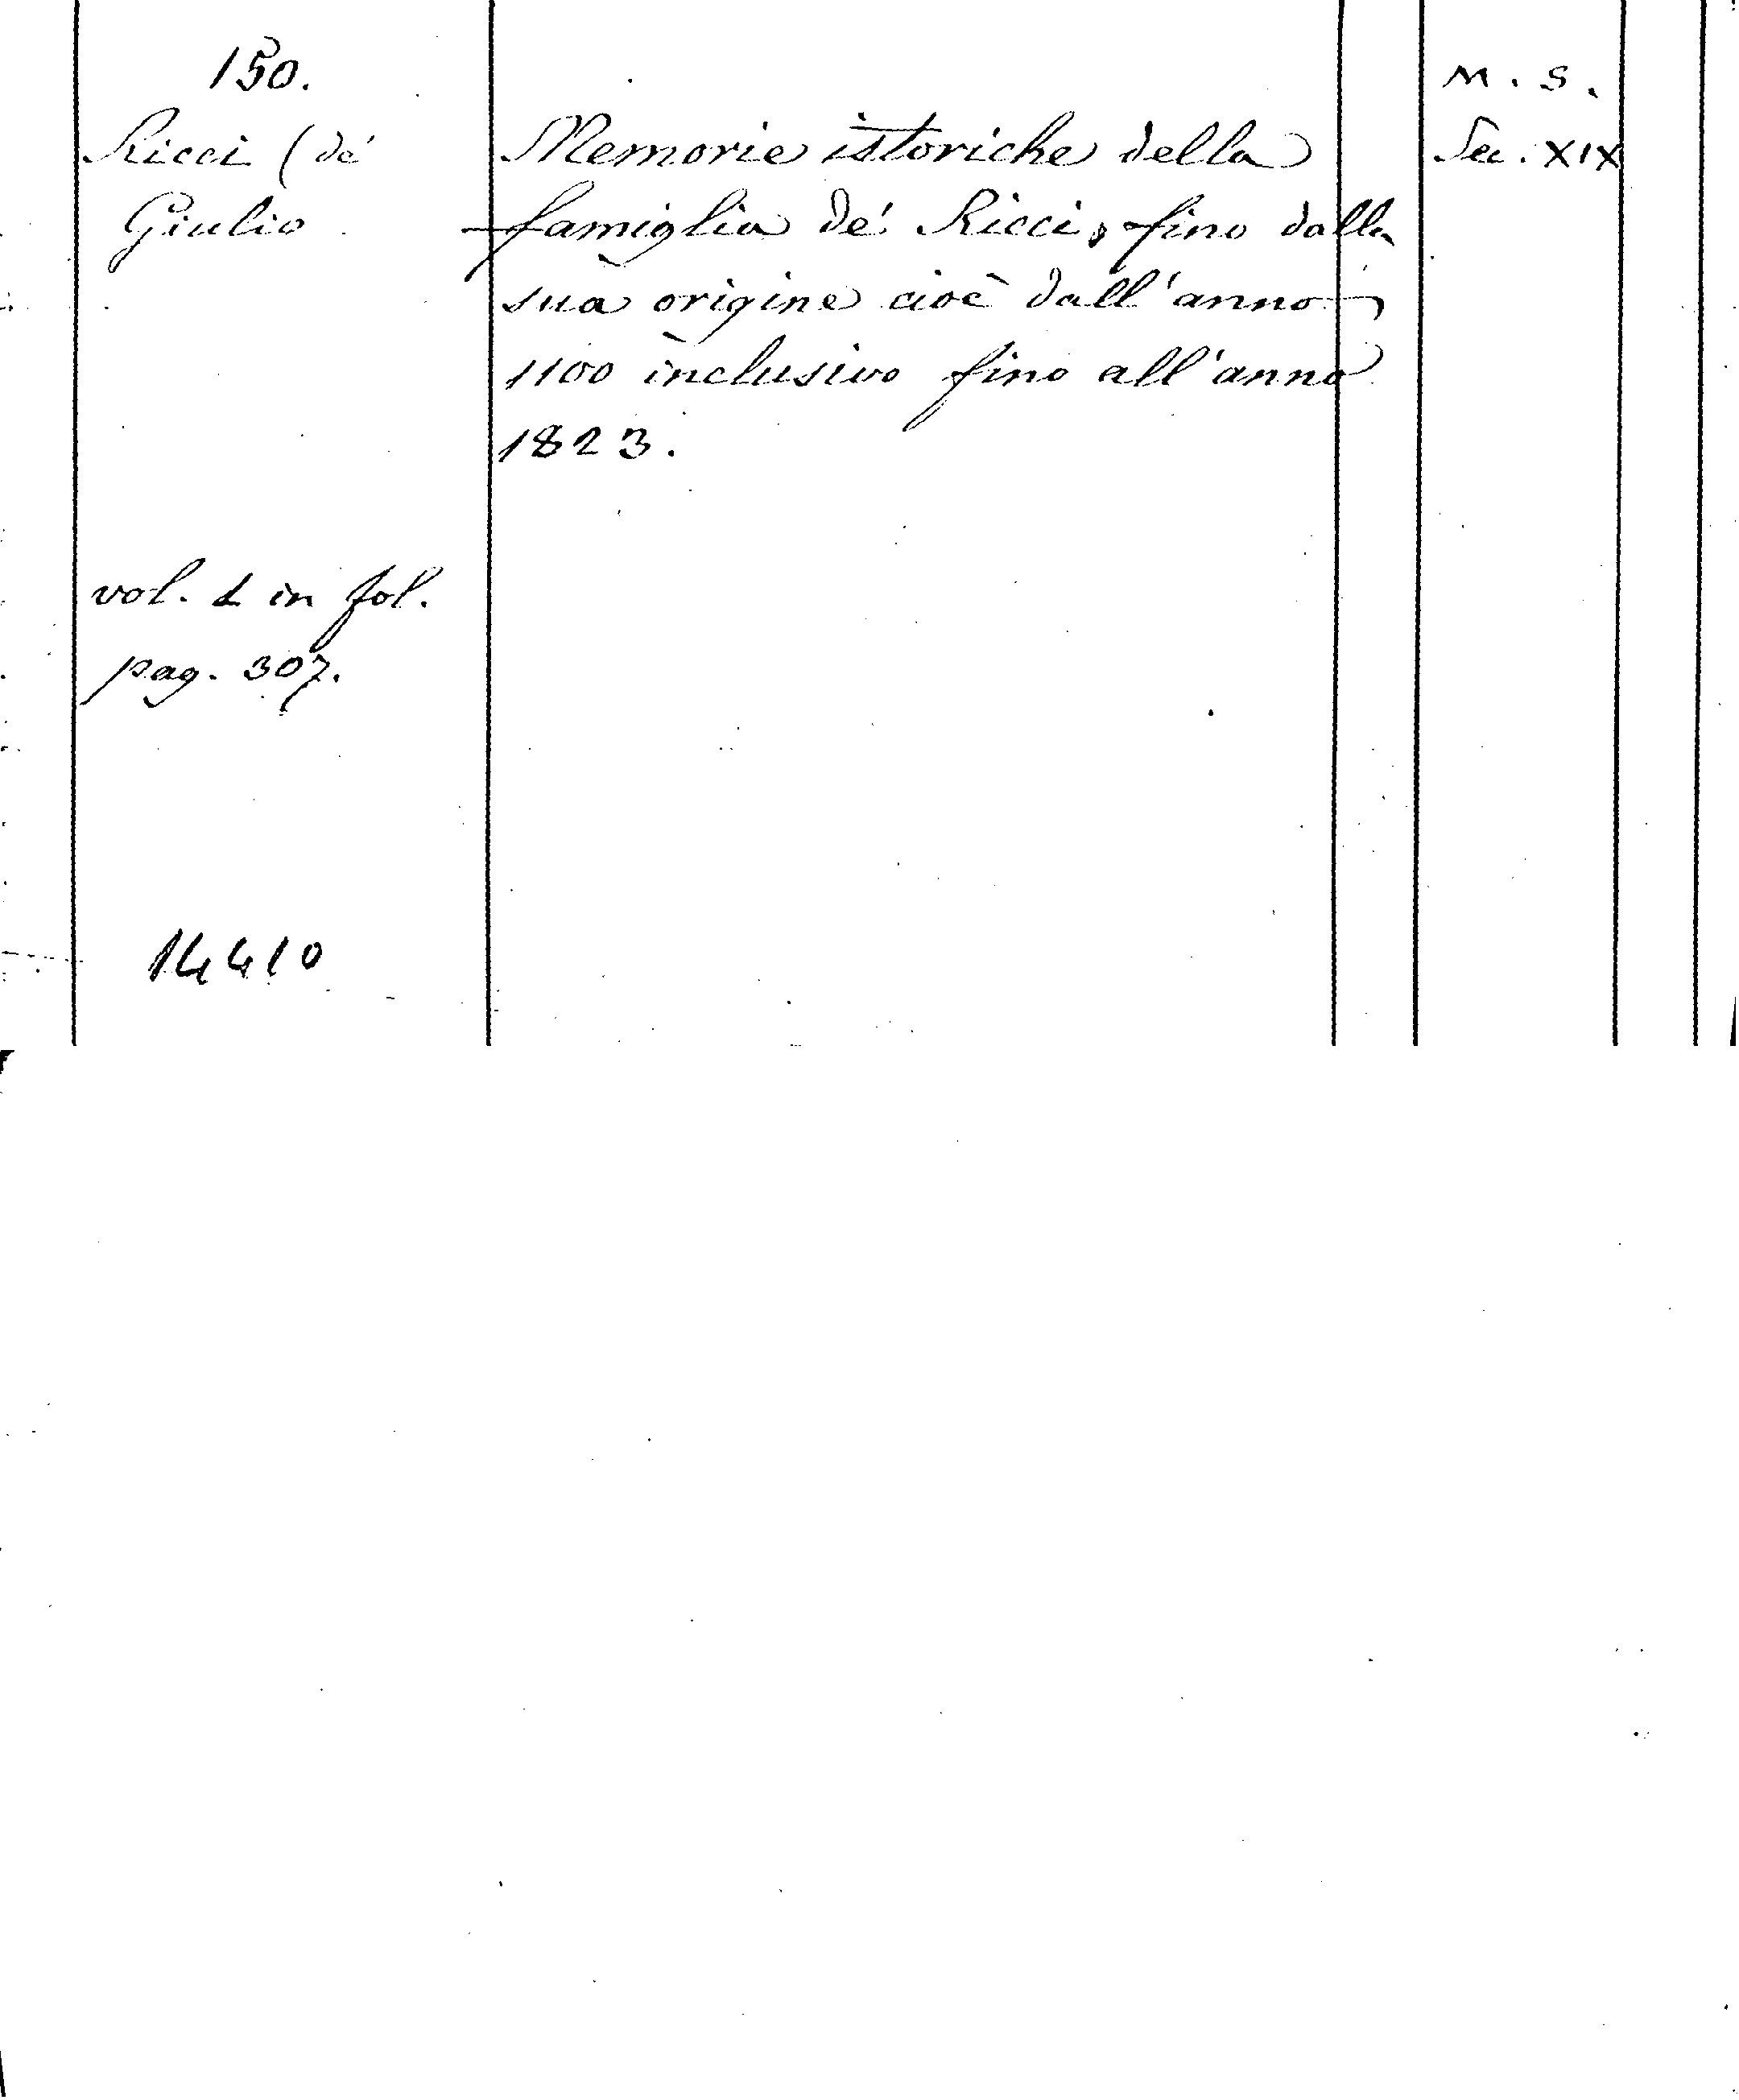 150.
Ricci (de'
Giulio
vol. 1 in fol.
pag. 307.
14410
Memorie istoriche della
famiglia de' Ricci, fino dalla
sua origine cioè dall'anno
1100 inclusivo fino all'anno
1823.
M. S.
Sec. XIX